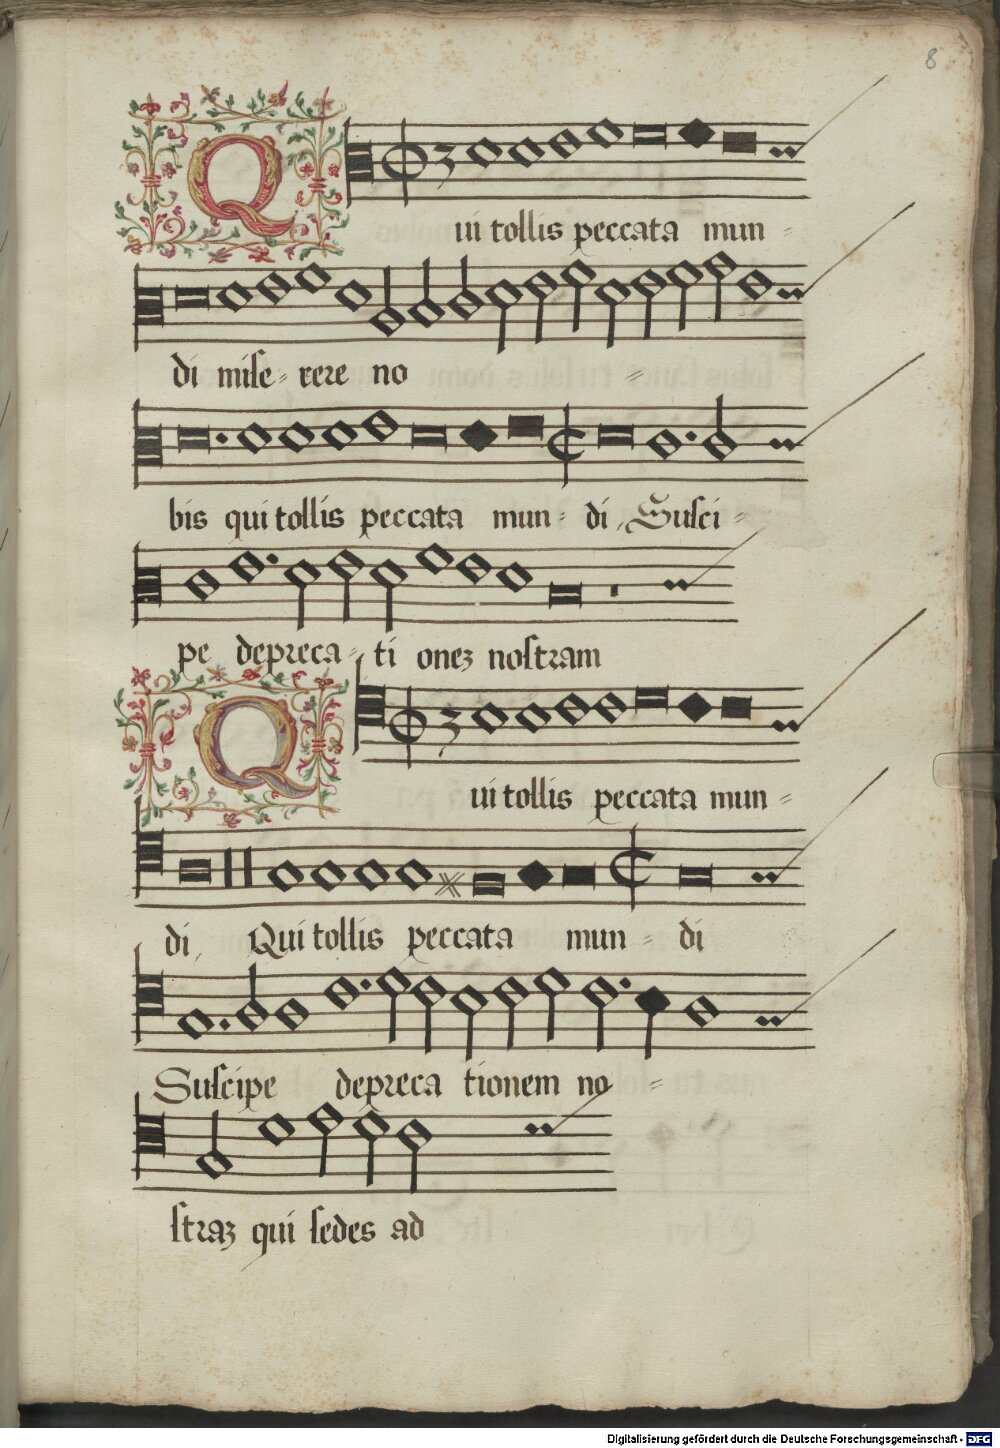 8
Qui tollis peccata mun-
di miſe- rere no -
bis qui tollis peccata mun- di, Suſci-
pe depreca- ti onez noſtram
Qui tollis peccata mun-
di, Qui tollis peccata mun - di
Suſcipe depreca tionem no -
ſtraz qui ſedes ad
Digitalisierung gefördert durch die Deutsche Forschungsgemeinschaft - DFG